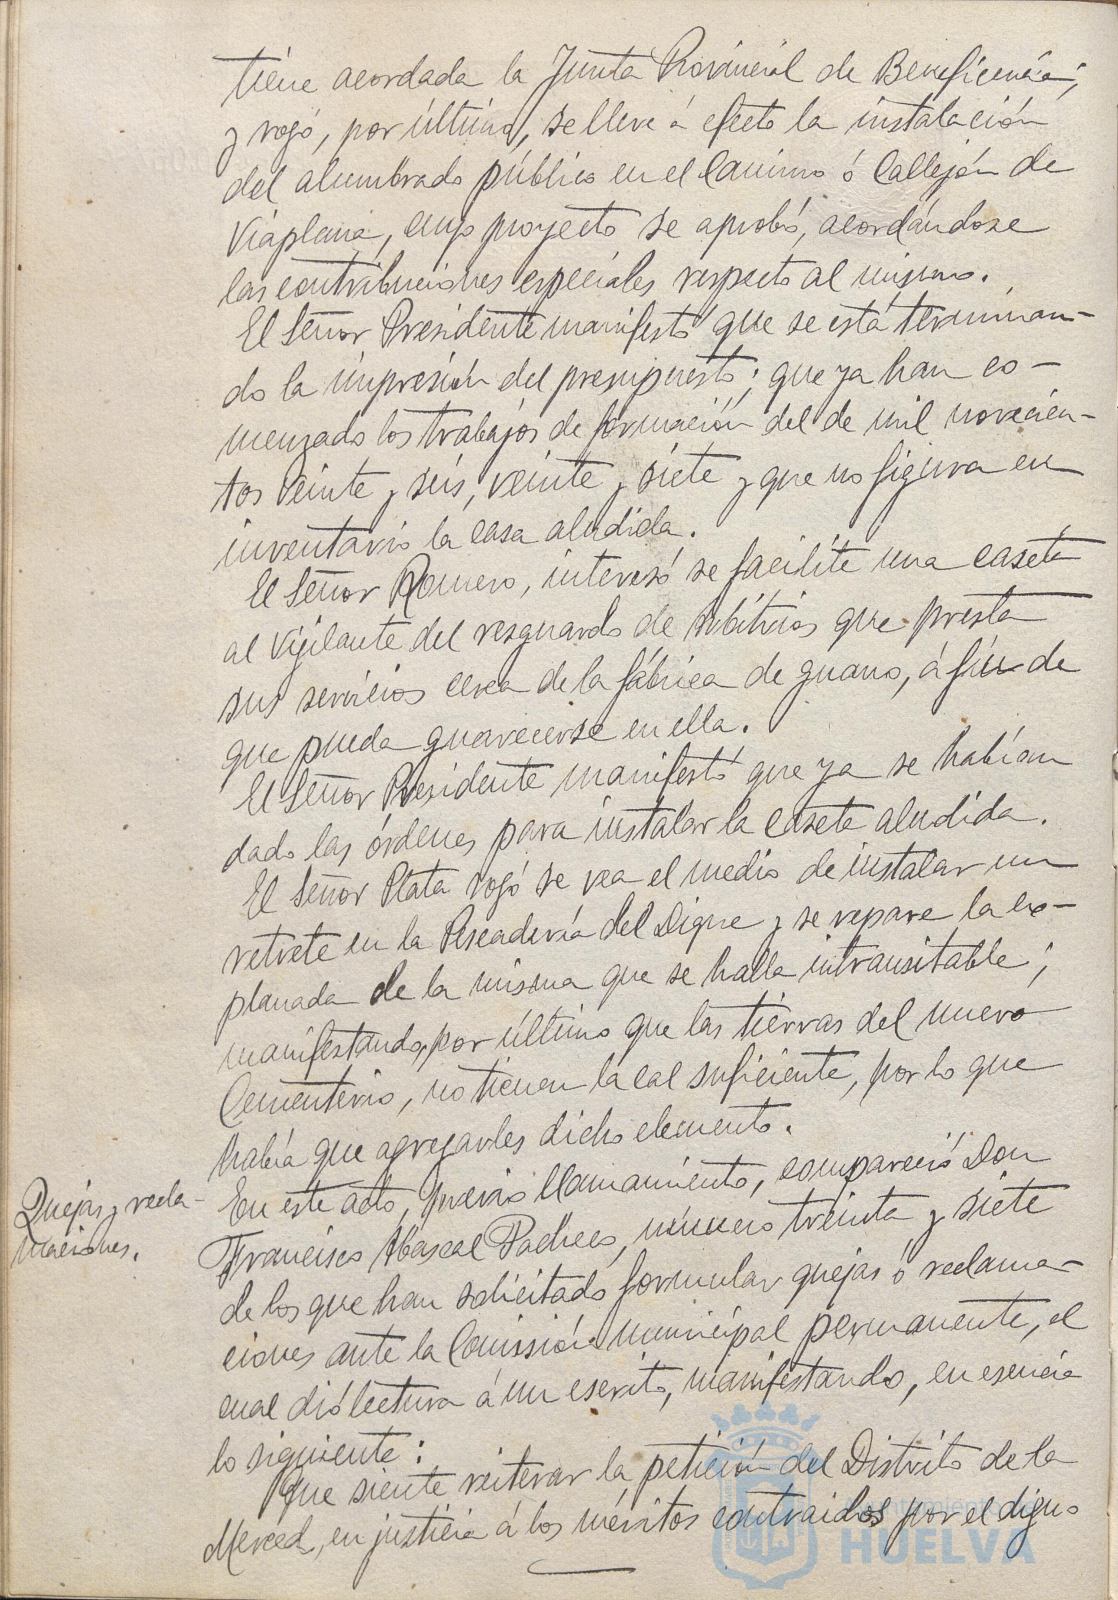 tiene acordada la Junta Provincial de Beneficencia;
y rogó, por último, se lleve á efecto la instalación
del alumbrado público en el Camino ó Callejón de
Viaplana, cuyo proyecto se aprobó, acordándose
las contribuciones especiales respecto al mismo.
El Señor Presidente manifestó que se está terminan-
do la impresión del presupuesto; que ya han co-
menzado los trabajos de formación del de mil novecien-
tos veinte y seis, veinte y siete y que no figura en
inventario la casa aludida.
El Señor Romero, interesó se facilite una caseta
al vigilante del resguardo de Arbitrios que presta
sus servicios cerca de la fábrica de guano, á fin de
que pueda guarecerse en ella.
El Señor Presidente manifestó que ya se habían
dado las órdenes para instalar la caseta aludida.
El Señor Plata rogó se vea el medio de instalar un
retrete en la Pescadería del Dique y se repare la ex-
planada de la misma que se halla intransitable;
manifestando, por último que las tierras del nuevo
Cementerio, no tienen la cal suficiente, por lo que
había que agregarles dicho elemento.
Quejas y recla-
maciones.
En este acto, previo llamamiento, compareció Don
Francisco Abascal Pacheco, número treinta y siete
de los que han solicitado formular quejas ó reclama-
ciones ante la Comisión municipal permanente, el
cual dió lectura á un escrito, manifestando, en esencia
lo siguiente:
Que siente reiterar la petición del Distrito de la
Merced, en justicia á los méritos contraidos por el digno
Ayuntamiento de
HUELVA